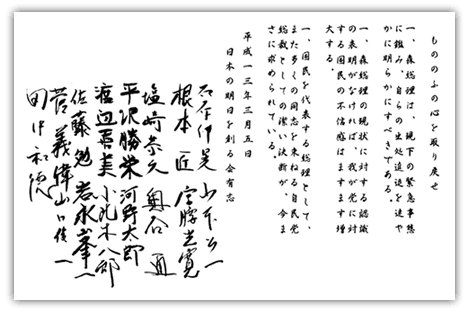 もののふの心を取り戻せ
一、森総理は、現下の緊急事態
に鑑み、自らの出処進退を速や
かに明らかにすべきである。
一、森総理の現状に対する認識
の表明がなければ、我が党に対
する国民の不信感はますます増
大する。
一、国民を代表する総理として、
また多くの同志を束ねる自民党
総裁としての潔い決断が、今ま
さに求められている。
平成一三年三月五日
日本の明日を創る会有志
石原伸晃 山本公一
根本匠 宮腰光寛
塩崎恭久 奥谷通
平沢勝栄 河野太郎
渡辺喜美 小此木八郎
佐藤勉 岩永峯一
菅義偉 山口俊一
田中和徳